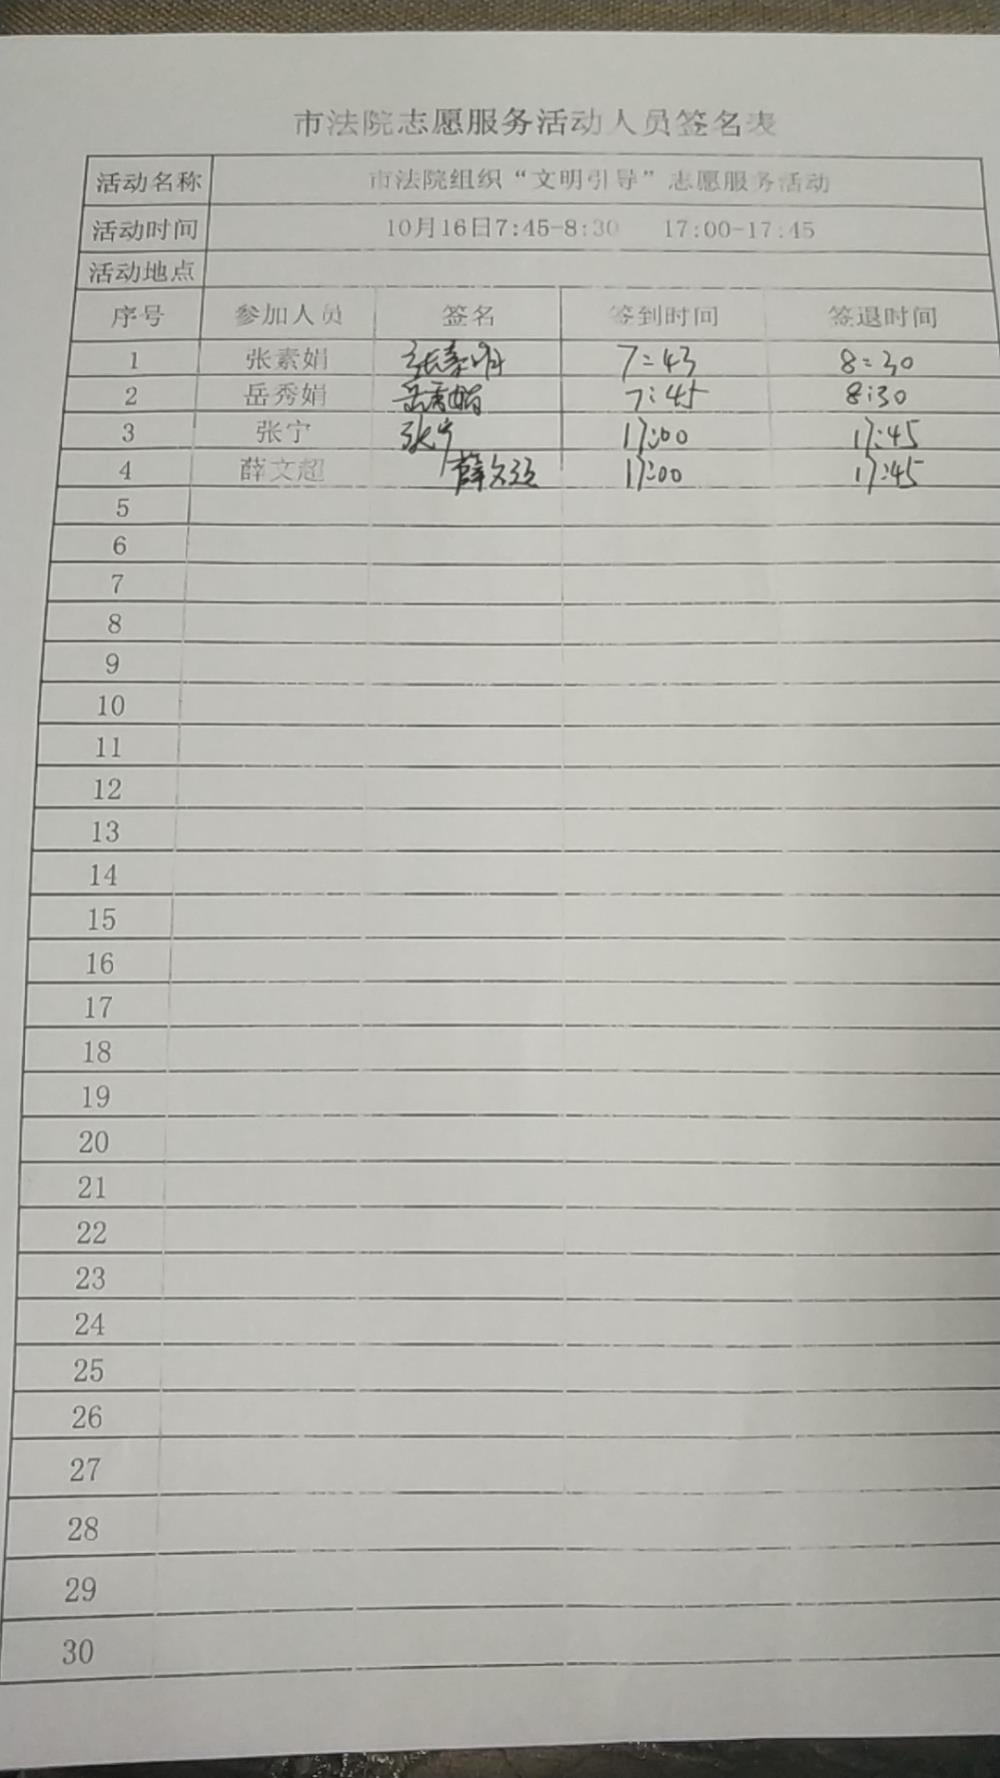 市法院志愿服务活动人员签名表
活动名称 市法院组织“文明引导”志愿服务活动
活动时间 10月16日7:45-8:30 17:00-17:45
活动地点
序号 参加人员 签名 签到时间 签退时间
1 张素娟 张素娟 7:43 8:30
2 岳秀娟 岳秀娟 7:45 8:30
3 张宁 张宁 17:00 17:45
4 薛文超 薛文超 17:00 17:45
5
6
7
8
9
10
11
12
13
14
15
16
17
18
19
20
21
22
23
24
25
26
27
28
29
30